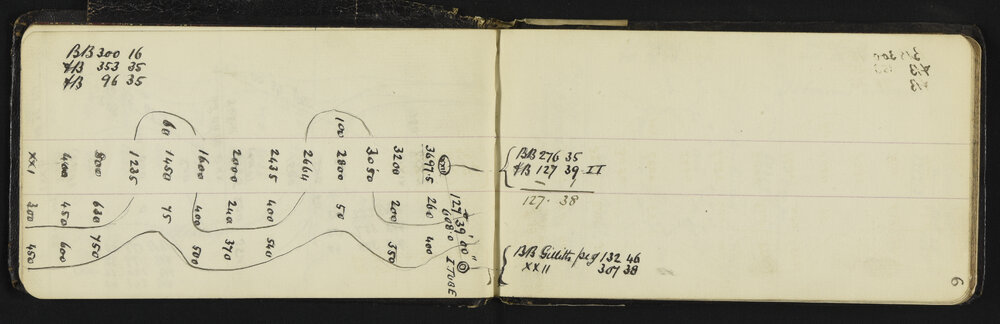 BB 300 16
fB 353 35
fB 96 35
3697.5 260 400
3200 200 350
3050
100 2800 50
2464
2435 400 540
2000 240 370
1600 400 500
60 1450 75
1235
800 630 750
400 450 600
XXI 300 450
127° 39' 00"
608.0 ITUBE
BB 276 35
fB 127 39 II
127. 38
BB Gilliths peg 132 46
XXII 307 38
6